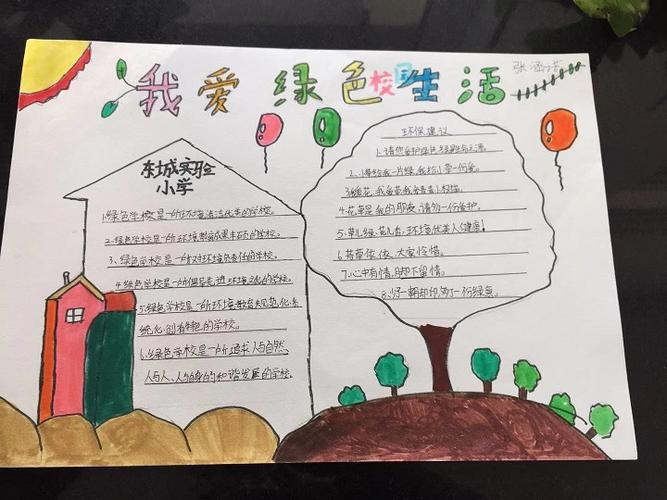 我爱绿色校园生活
张
东城实验
小学
1.绿色学校是一所环境清洁优美的学校。
2.绿色学校是一所环境教育成果丰硕的学校。
3、绿色学校是一所对环境负责任的学校。
4.绿色学校是一所倡导先进环境文化的学校。
5.绿色学校是一所环境教育规范化、系
统化、创有特色的学校。
6.绿色学校是一所追求人与自然、
人与人、人与自身的和谐发展的学校。
环保建议
1.请您爱护绿色
2.、得给我一片绿,我给一份爱。
4.花草是我的朋友,请勿一份爱护。
5.草儿绿,花儿香,环境优美人健康!
6.芳草依依,大家怜惜。
7.心中有情,脚下留情。
8.少一份绿意。